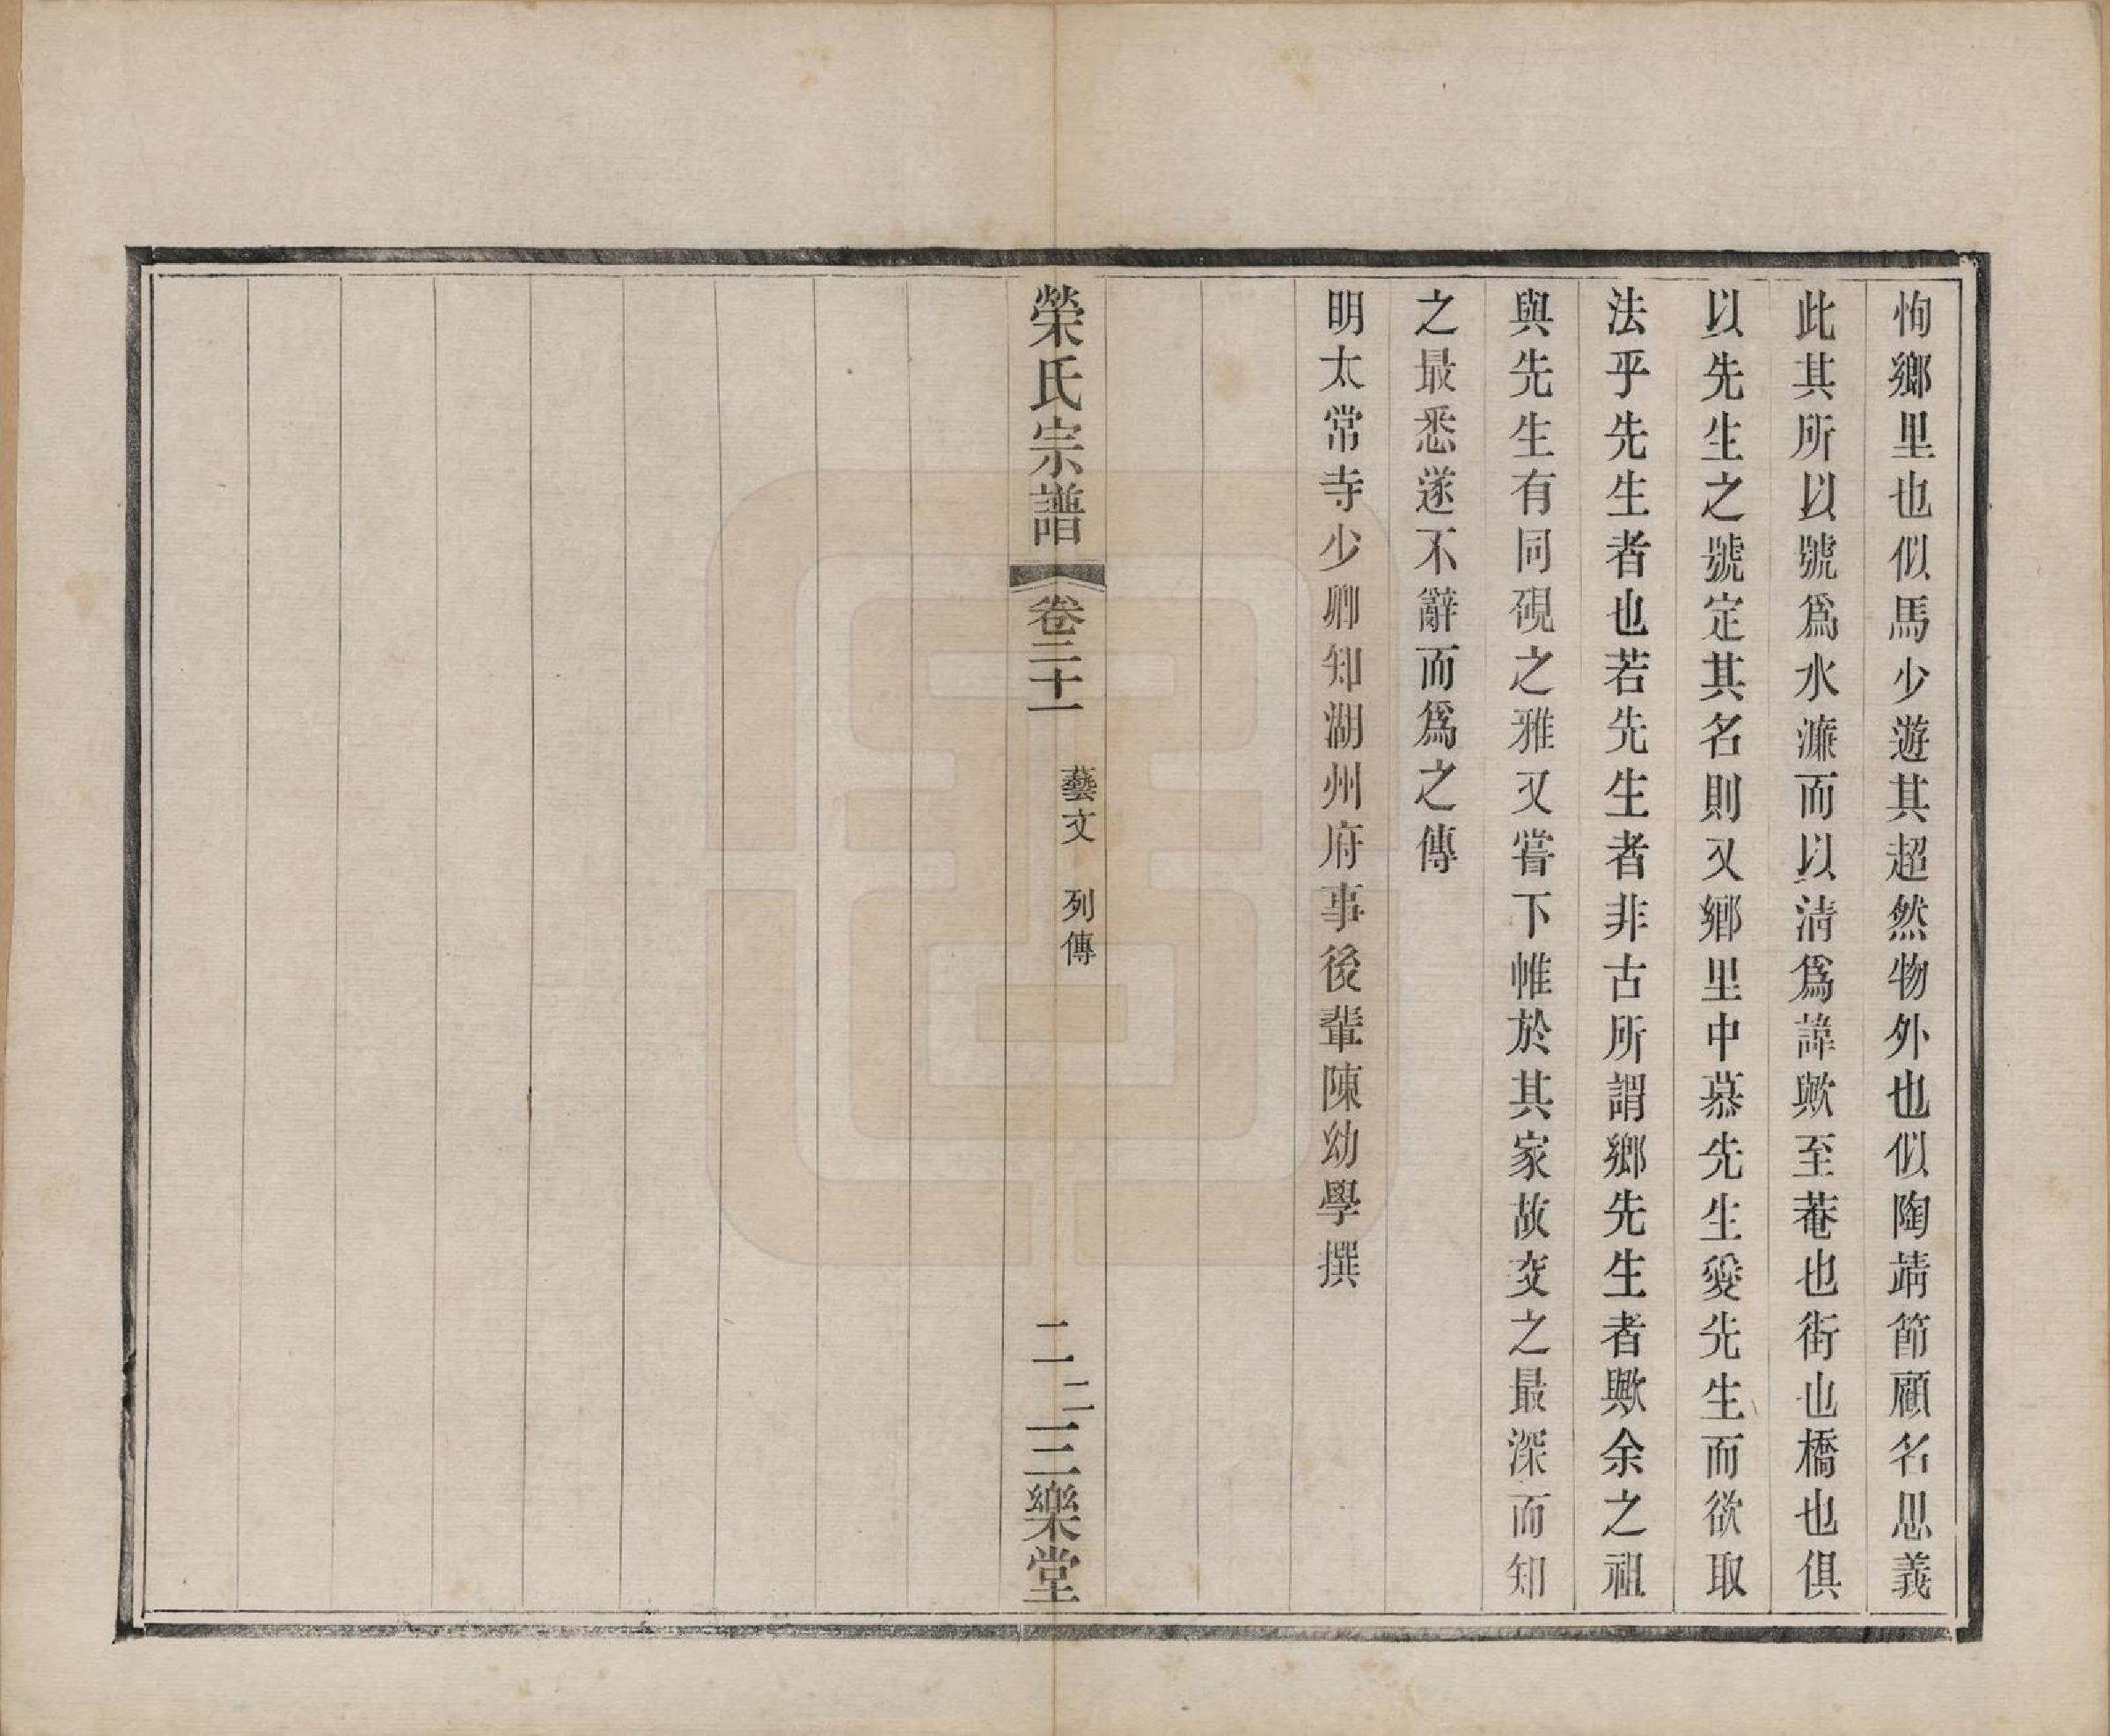 恂鄉里也似馬少遊其超然物外也似陶靖節顧名思義
此其所以號爲水濂而以清爲諱歟至菴也街也橋也俱
以先生之號定其名則又鄉里中慕先生愛先生而欲取
法乎先生者也若先生者非古所謂鄉先生者歟余之祖
與先生有同硯之雅又嘗下帷於其家故交之最深而知
之最悉遂不辭而爲之傳
明太常寺少卿知湖州府事後輩陳幼學撰
榮氏宗譜 卷二十一 藝文 列傳 二二 三樂堂